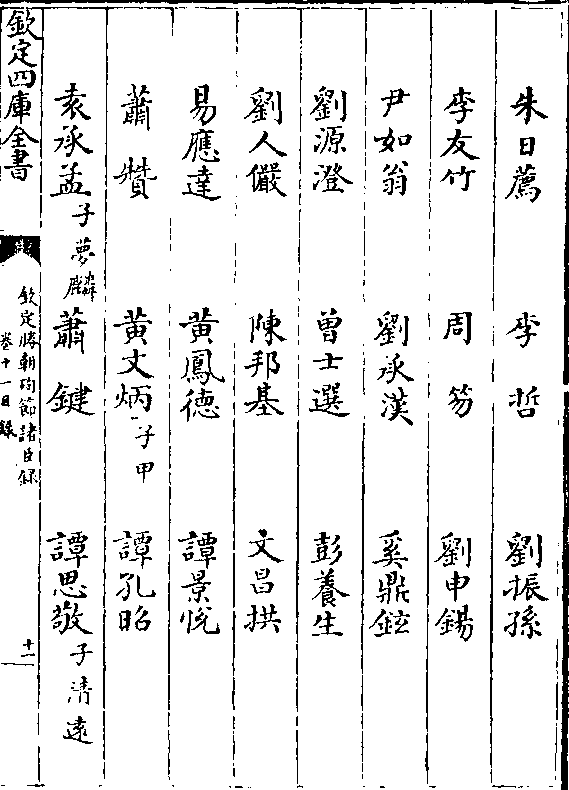 朱日薦　李　哲　劉振孫
李友竹　周　笏　劉申錫
尹如翁　劉承漢　奚鼎鉉
劉源澄　曾士選　彭養生
劉人儼　陳邦基　文昌拱
易應達　黃鳳德　譚景悅
蕭　贊　黃文炳子甲　譚孔昭
袁承孟子夢麟　蕭　鍵　譚思敬子清遠
欽定四庫全書
欽定勝朝殉節諸臣錄
卷十一目錄
十一